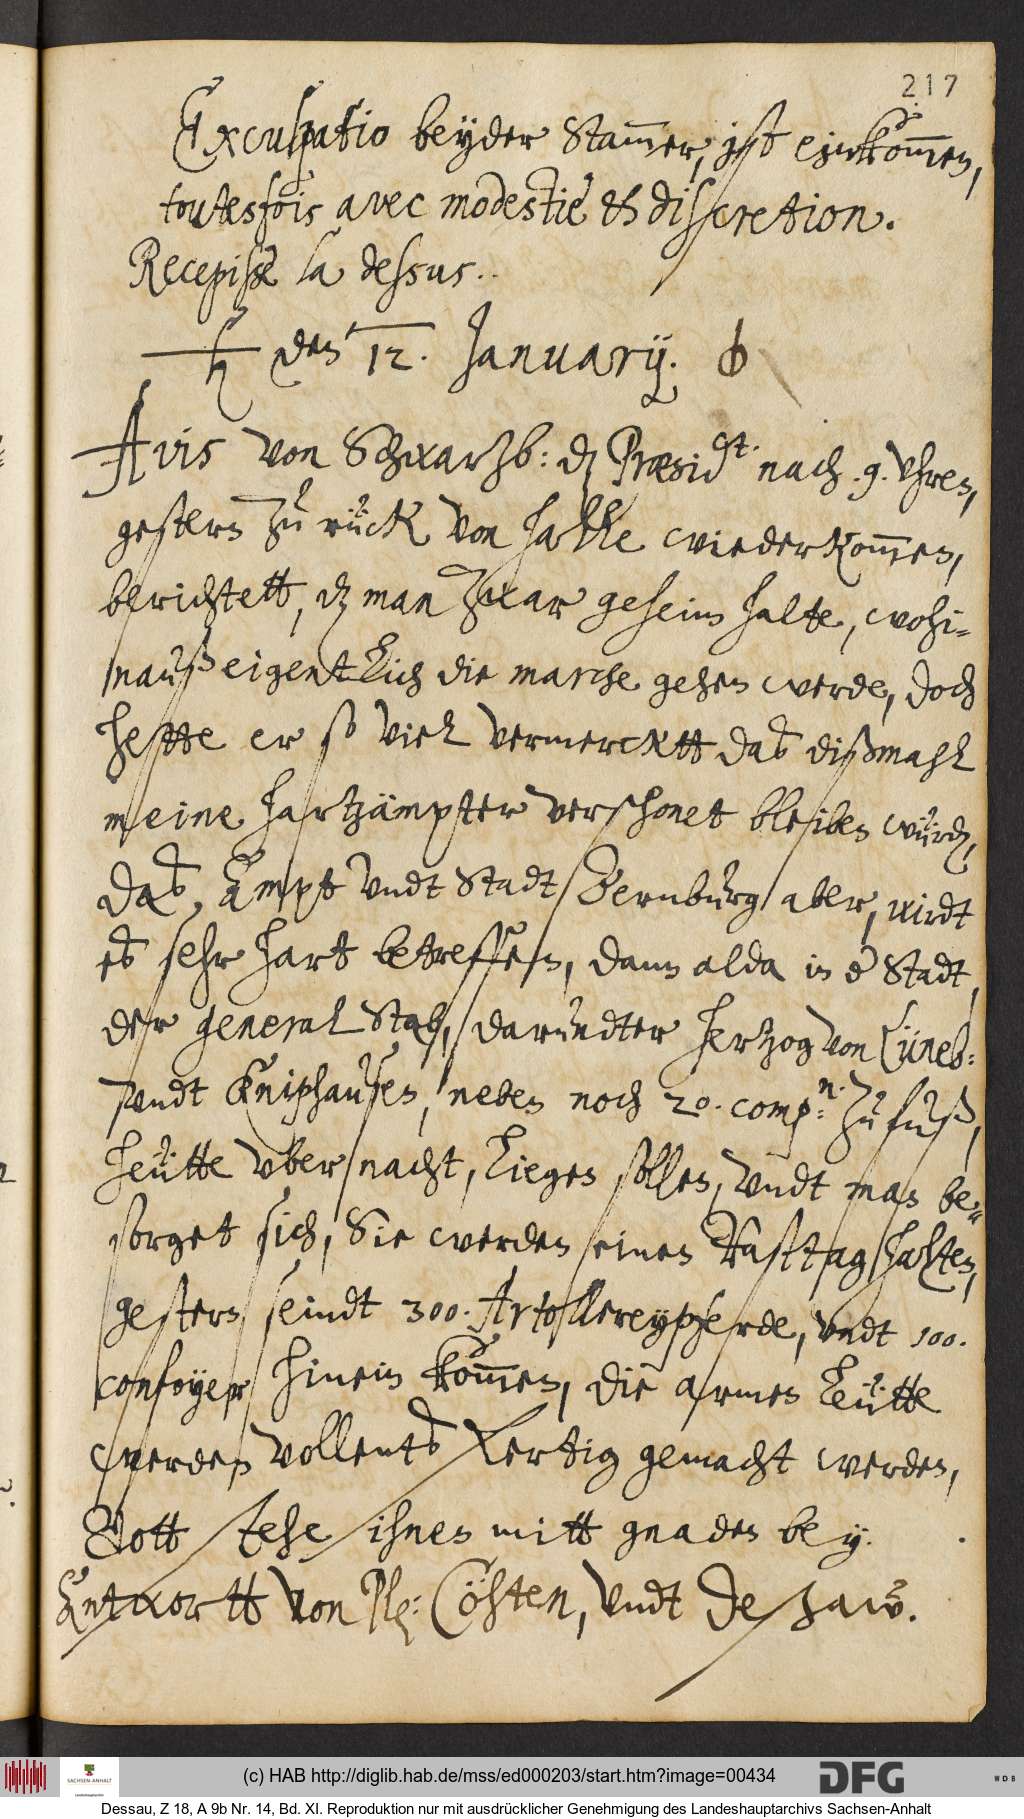 217
Exculpatio beyder Stam̄er, ist einkom̄en,
toutesfois avec modestie & discretion.
Recepissè la dessus..
♄ den 12. January.
Avis von Schwartzb: dz Præsid.t nach .9. vhren,
gestern zu rück von Halle wiederkom̄en,
berichtett, dz man zwar geheim halte, wohi-
nauß eigentlich die marche gehen werde, doch
hette er so viel vermercktt das dißmahl
meine Hartzämpter verschonet bleiben würdẽ,
das Ampt vndt Stadt Bernburg aber, wirdt
es sehr hart betreffen, dann alda in d' Stadt,
der general Stab, darundter Hertzog von Lüneb:
vndt Kniphausen, neben noch 20. comp:n. zu fuß,
heütte vber nacht, liegen sollen, vndt man be-
sorget sich, Sie werden einen Rasttag halten,
gestern seindt 300. Artollereypferde, vndt 100.
confoyer hinein kom̄en, die armen leütte
werden vollents fertig gemacht werden,
Gott stehe ihnen mitt gnaden bey.
Antwortt von Ple: Cöhten, vndt Deßaw.
(c) HAB http://diglib.hab.de/mss/ed000203/start.htm?image=00434
SACHSEN-ANHALT
DFG
WDB
Dessau, Z 18, A 9b Nr. 14, Bd. XI. Reproduktion nur mit ausdrücklicher Genehmigung des Landeshauptarchivs Sachsen-Anhalt